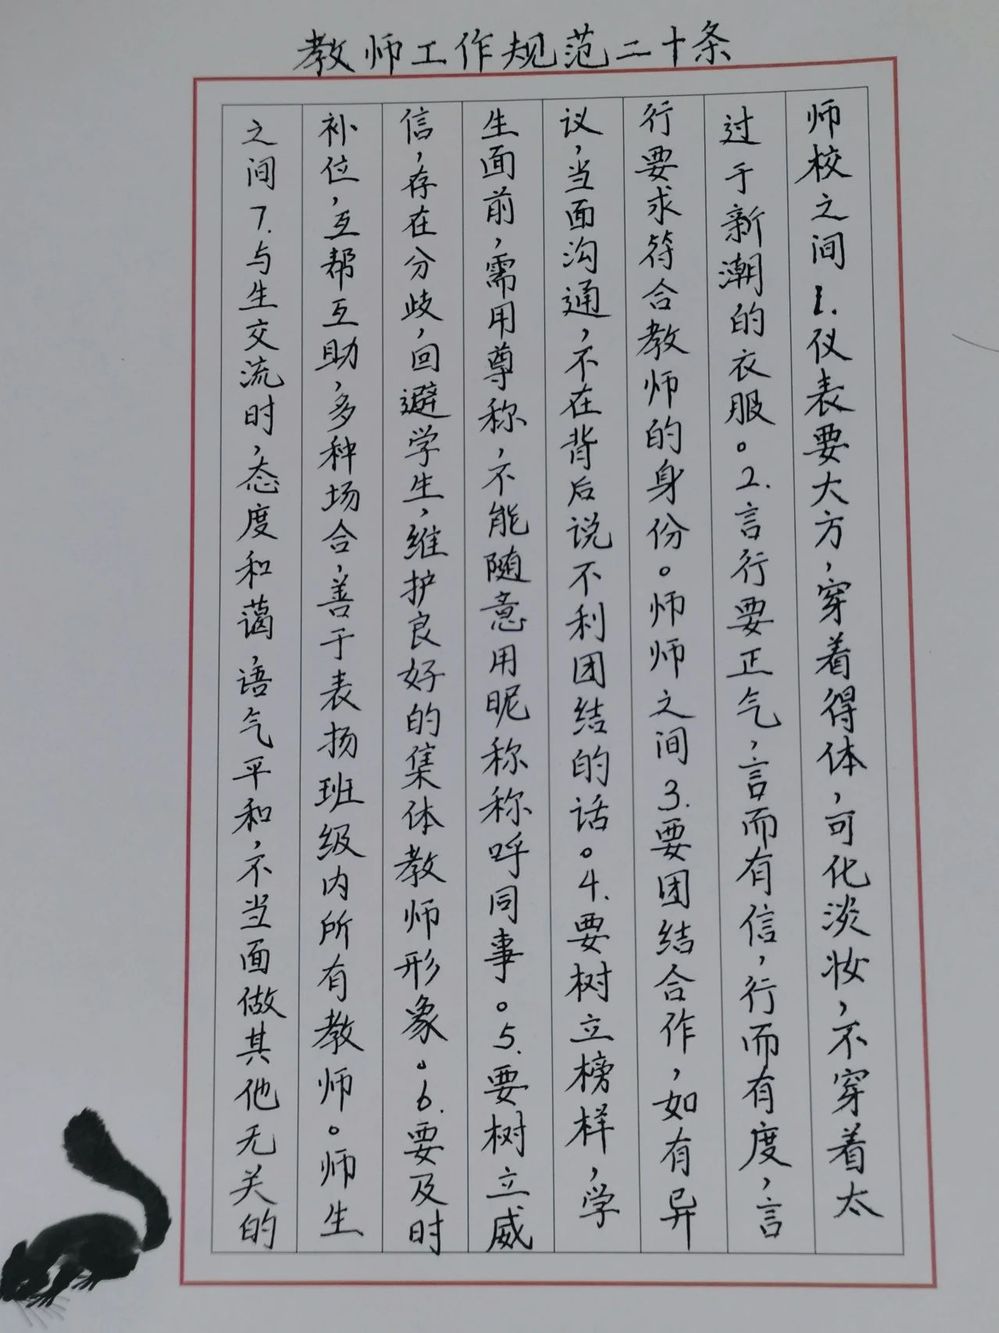 教师工作规范二十条
师校之间1.仪表要大方,穿着得体,可化淡妆,不穿着太
过于新潮的衣服。2.言行要正气,言而有信,行而有度,言
行要求符合教师的身份。师师之间3.要团结合作,如有异
议,当面沟通,不在背后说不利团结的话。4.要树立榜样,学
生面前,需用尊称,不能随意用昵称称呼同事。5.要树立威
信,存在分歧,回避学生,维护良好的集体教师形象。6.要及时
补位,互帮互助,多种场合,善于表扬班级内所有教师。师生
之间7.与生交流时,态度和蔼,语气平和,不当面做其他无关的